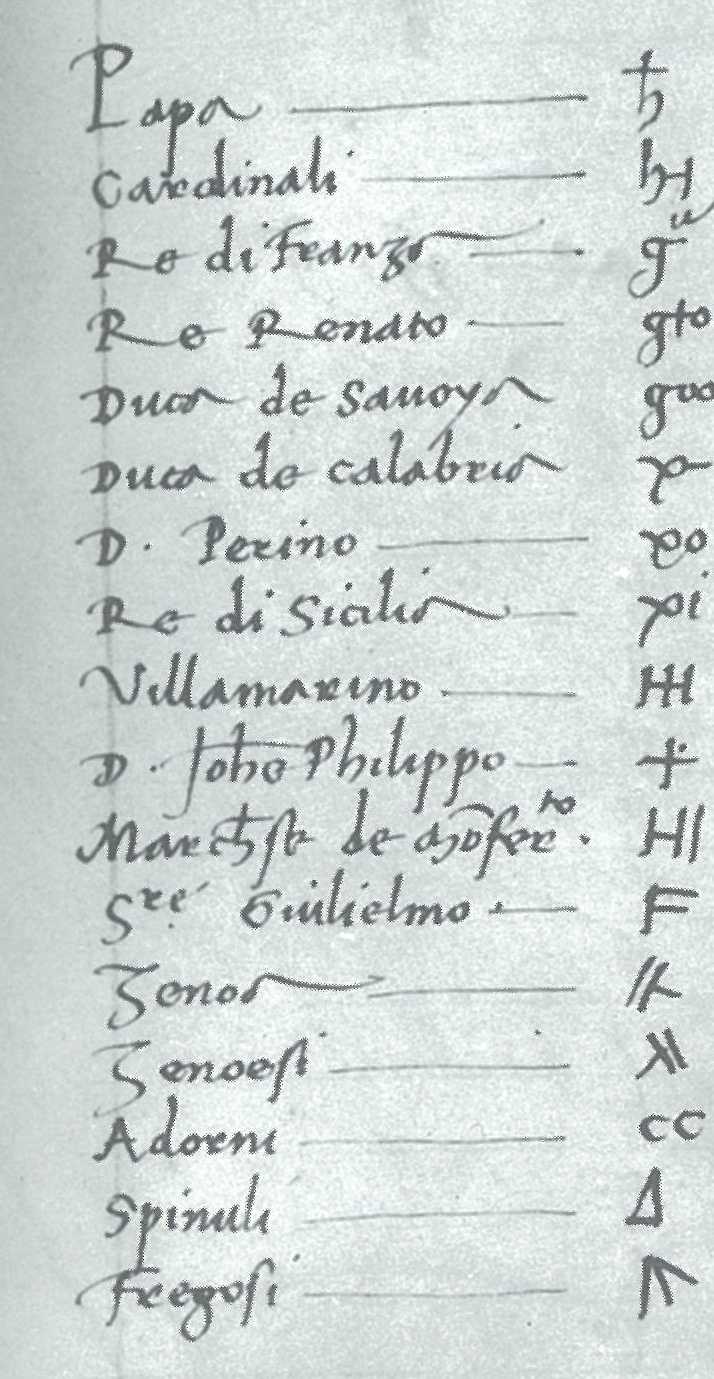 Papa
Cardinali
Re di Franza
Re Renato gto
Duca de Sauoya goo
Duca de calabria
D. Perino
Re di Sicilia
Villamarino
D. Johe Philippo
Marchese de Mōfer^to.
S^re Guilielmo F
Zenoa
Zenoesi
Adorni cc
Spinuli Δ
Fregosi